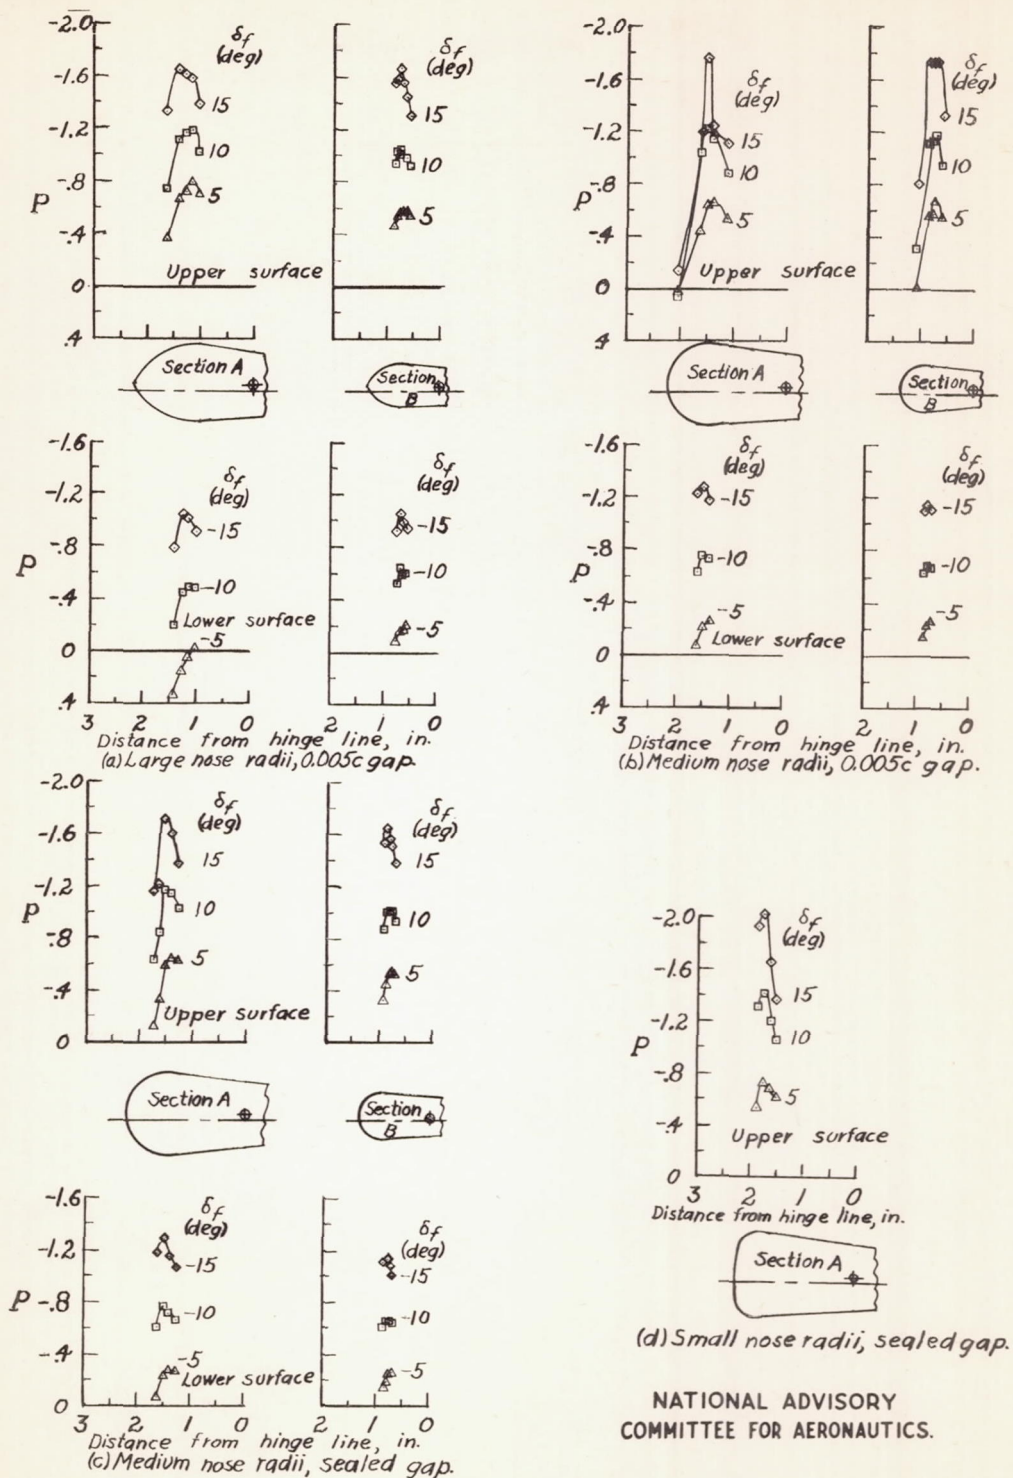 -2.0
-1.6
-1.2
-.8
-.4
0
.4
P
δf
(deg)
15
10
5
Upper surface
δf
(deg)
15
10
5
Section A
Section
B
-1.6
-1.2
-.8
-.4
0
.4
P
δf
(deg)
-15
-10
Lower surface
-5
δf
(deg)
-15
-10
-5
3 2 1 0 2 1 0
Distance from hinge line, in.
(a) Large nose radii, 0.005c gap.
-2.0
-1.6
-1.2
-.8
-.4
0
.4
P
δf
(deg)
15
10
5
Upper surface
δf
(deg)
15
10
5
Section A
Section
B
-1.6
-1.2
-.8
-.4
0
.4
P
δf
(deg)
-15
-10
-5
Lower surface
δf
(deg)
-15
-10
-5
3 2 1 0 2 1 0
Distance from hinge line, in.
(b) Medium nose radii, 0.005c gap.
-2.0
-1.6
-1.2
-.8
-.4
0
P
δf
(deg)
15
10
5
Upper surface
δf
(deg)
15
10
5
Section A
Section
B
-1.6
-1.2
-.8
-.4
0
P
δf
(deg)
-15
-10
-5
Lower surface
δf
(deg)
-15
-10
-5
3 2 1 0 2 1 0
Distance from hinge line, in.
(c) Medium nose radii, sealed gap.
-2.0
-1.6
-1.2
-.8
-.4
0
P
δf
(deg)
15
10
5
Upper surface
3 2 1 0
Distance from hinge line, in.
Section A
(d) Small nose radii, sealed gap.
NATIONAL ADVISORY
COMMITTEE FOR AERONAUTICS.